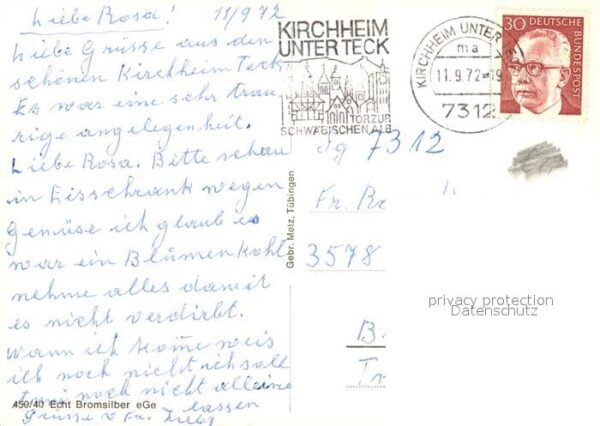 Liebe Rosa! 11/9 72
Liebe Grüsse aus den
schönen Kirchheim Teck
Es war eine sehr trau
rige angelegenheit.
Liebe Rosa. Bitte schau
in Eisschrank wegen
Gemüse ich glaub es
war ein Blumenkohl
nehme alles damit
es nicht verdirbt.
wann ich kome weis
ich noch nicht ich soll
noch nicht alleine
lassen
Grüsse v. Fr.
450/40 Echt Bromsilber eGe
Gebr. Metz, Tübingen
KIRCHHEIM
UNTER TECK
TOR ZUR
SCHWÄBISCHEN ALB
KIRCHHEIM UNTER
ma
11.9.72
7312
30 DEUTSCHE
BUNDESPOST
7312
Fr.
3578
B
privacy protection
Datenschutz